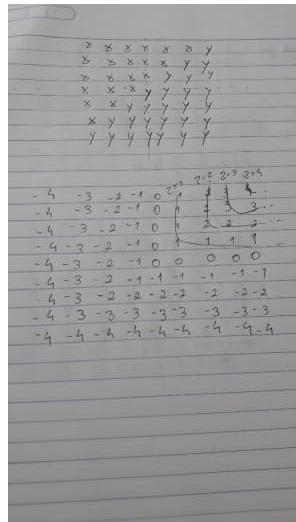 x x x x x x y
x x x x x y y
x x x x y y y
x x x y y y y
x x y y y y y
x y y y y y y
y y y y y y y
r=1 r=2 r=3 r=4
-4 -3 -2 -1 0 1 2 3 4
-4 -3 -2 -1 0 1 2 3 3
-4 -3 -2 -1 0 1 2 2 2
-4 -3 -2 -1 0 1 1 1 1
-4 -3 -2 -1 0 0 0 0 0
-4 -3 -2 -1 -1 -1 -1 -1 -1
-4 -3 -2 -2 -2 -2 -2 -2 -2
-4 -3 -3 -3 -3 -3 -3 -3 -3
-4 -4 -4 -4 -4 -4 -4 -4 -4